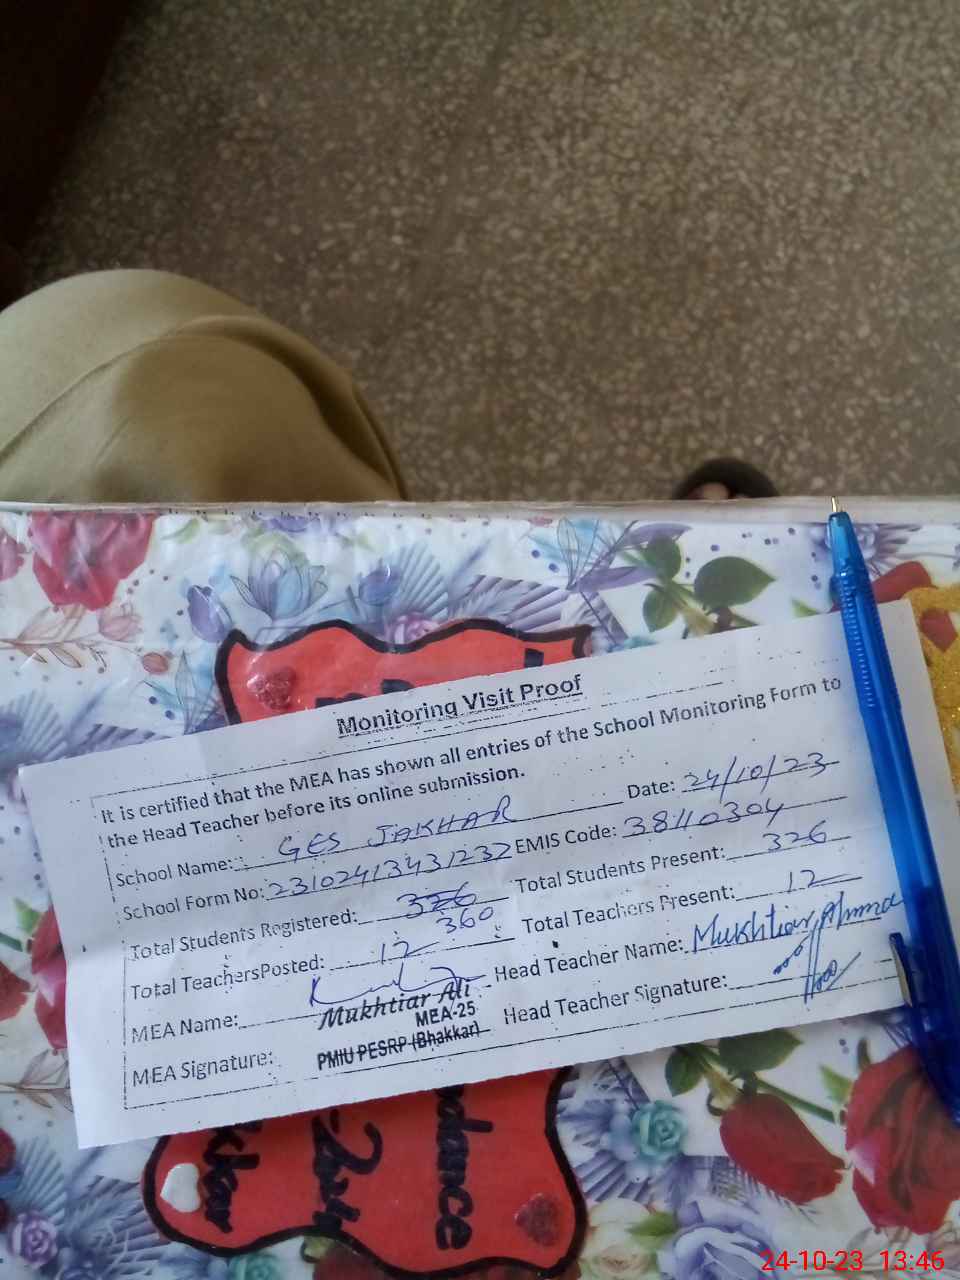 Monitoring Visit Proof
It is certified that the MEA has shown all entries of the School Monitoring Form to
the Head Teacher before its online submission.
School Name: GES JAKHAR Date: 24/10/23
School Form No: 23102413431232 EMIS Code: 38110304
Total Students Registered: 326 360 Total Students Present: 326
Total TeachersPosted: 12 Total Teachers Present: 12
MEA Name: Mukhtiar Ali Head Teacher Name: Mukhtiar Ahmad
MEA-25
MEA Signature: PMIU PESRP (Bhakkar) Head Teacher Signature:
ndance
24-10-23 13:46